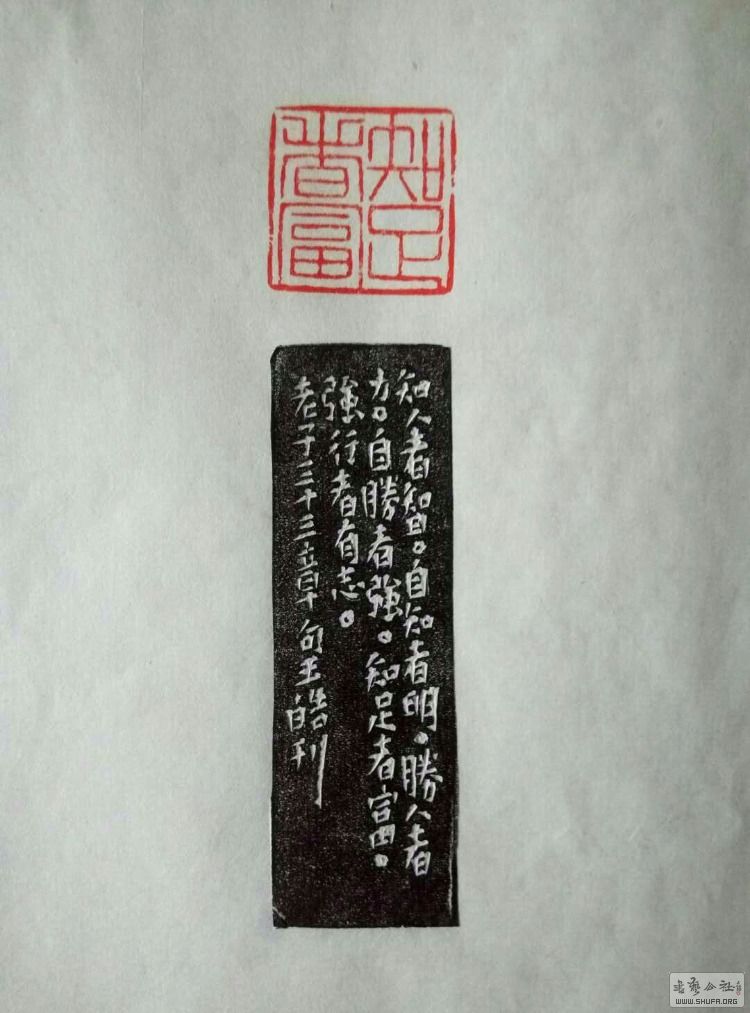 知足
者富
知人者智。自知者明。勝人者
力。自勝者強。知足者富。
強行者有志。
老子三十三章句王皓刊
書藝公社
WWW.SHUFA.ORG